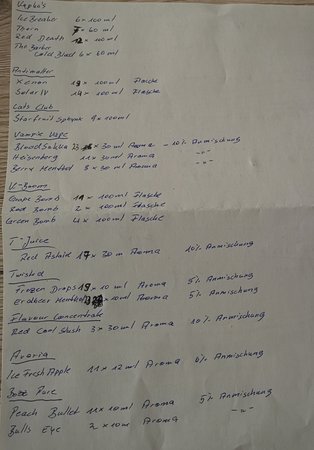 Vapbo's
Ice Breaker 6 x 100 ml
Thorn 7 x 60 ml
Red Death 12 x 100 ml
The Barber
Cold Blast 6 x 60 ml
Antimatter
Xenon 19 x 100 ml Flasche
Solaris 19 x 100 ml Flasche
Cats Club
Starfruit 9 x 100 ml
Vampire Vape
Blood Sukka x 30 ml Aroma - 10% Anmischung
Heisenberg 11 x 30 ml Aroma -"-
Berry Menthol 3 x 30 ml Aroma -"-
V-Boom
Grape Bomb 19 x 100 ml Flasche
Red Bomb 2 x 100 ml Flasche
Green Bomb 4 x 100 ml Flasche
T-Juice
Red Astaire 17 x 30 m Aroma 10% Anmischung
Twisted
Frozen Drops 19 x 10 ml Aroma 5% Anmischung
Erdbeer Menthol x 10 ml Aroma 5% Anmischung
Flavour Concentrate
Red Cool Slush 3 x 30 ml Aroma 10% Anmischung
Avoria
Ice Fresh Apple 11 x 12 ml Aroma 6% Anmischung
Pure
Peach Bullet 11 x 10 ml Aroma 5% Anmischung
Bulls Eye 2 x 10 m Aroma -"-